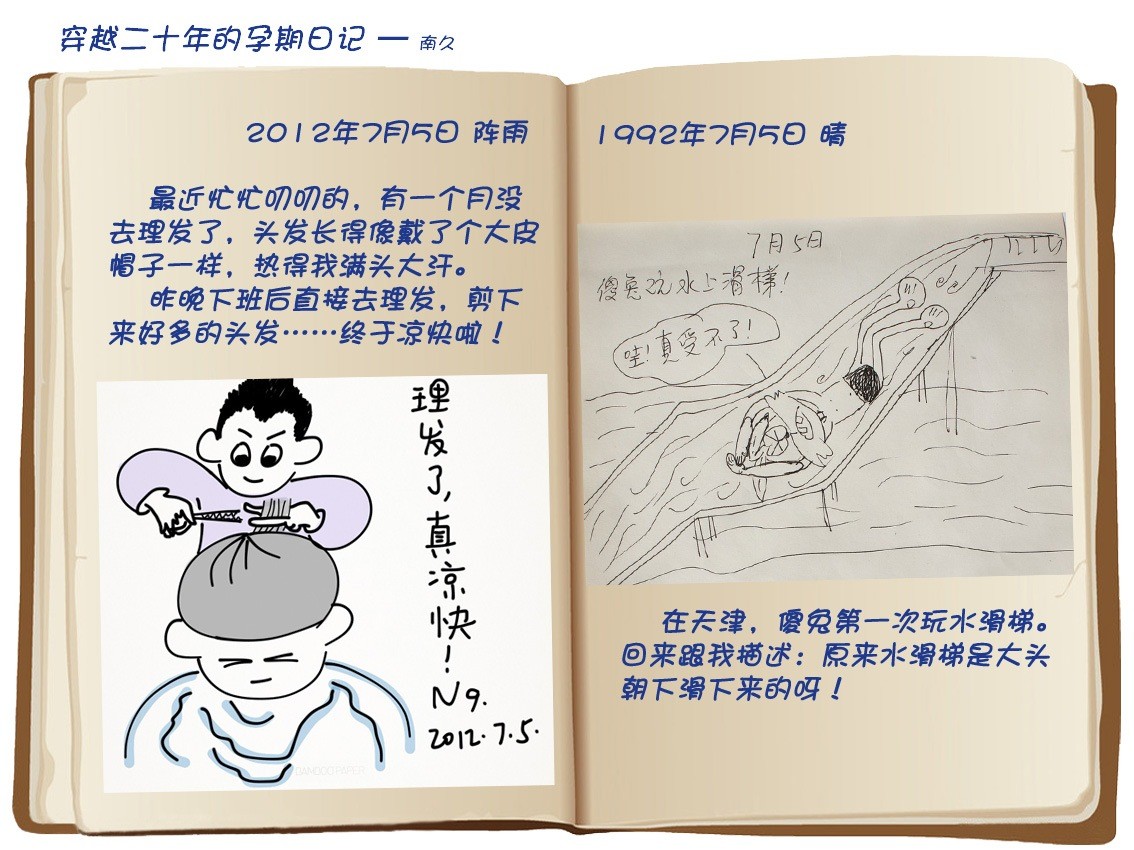 穿越二十年的孕期日记 — 南久
2012年7月5日 阵雨
最近忙忙叨叨的，有一个月没
去理发了，头发长得像戴了个大皮
帽子一样，热得我满头大汗。
昨晚下班后直接去理发，剪下
来好多的头发……终于凉快啦！
理发了，真凉快！
N9.
2012.7.5.
BAMBOO PAPER
1992年7月5日 晴
7月5日
傻兔玩水上滑梯！
哇！真受不了！
在天津，傻兔第一次玩水滑梯。
回来跟我描述：原来水滑梯是大头
朝下滑下来的呀！